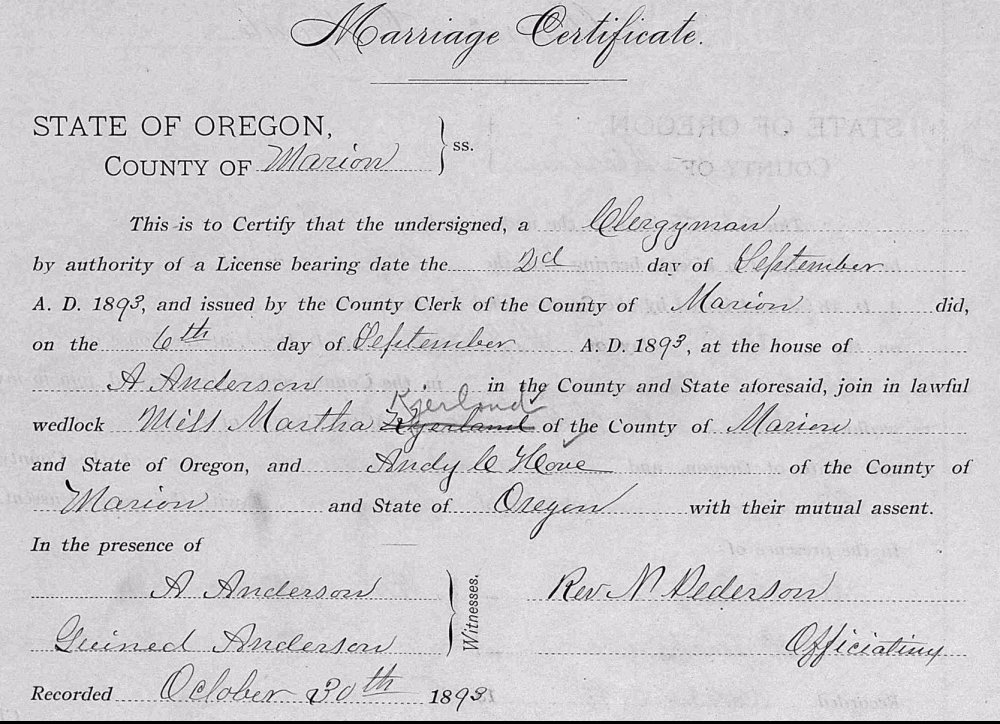 Marriage Certificate.
STATE OF OREGON,
COUNTY OF Marion } ss.
This is to Certify that the undersigned, a Clergyman
by authority of a License bearing date the 2d day of September
A. D. 1893, and issued by the County Clerk of the County of Marion did,
on the 6th day of September A. D. 1893, at the house of
A Anderson in the County and State aforesaid, join in lawful
Kjerland
wedlock Miss Martha of the County of Marion
and State of Oregon, and Andy C Hove of the County of
Marion and State of Oregon with their mutual assent.
In the presence of
A Anderson
Anderson
Witnesses.
Rev N Pederson
Officiating
Recorded October 30th 1893